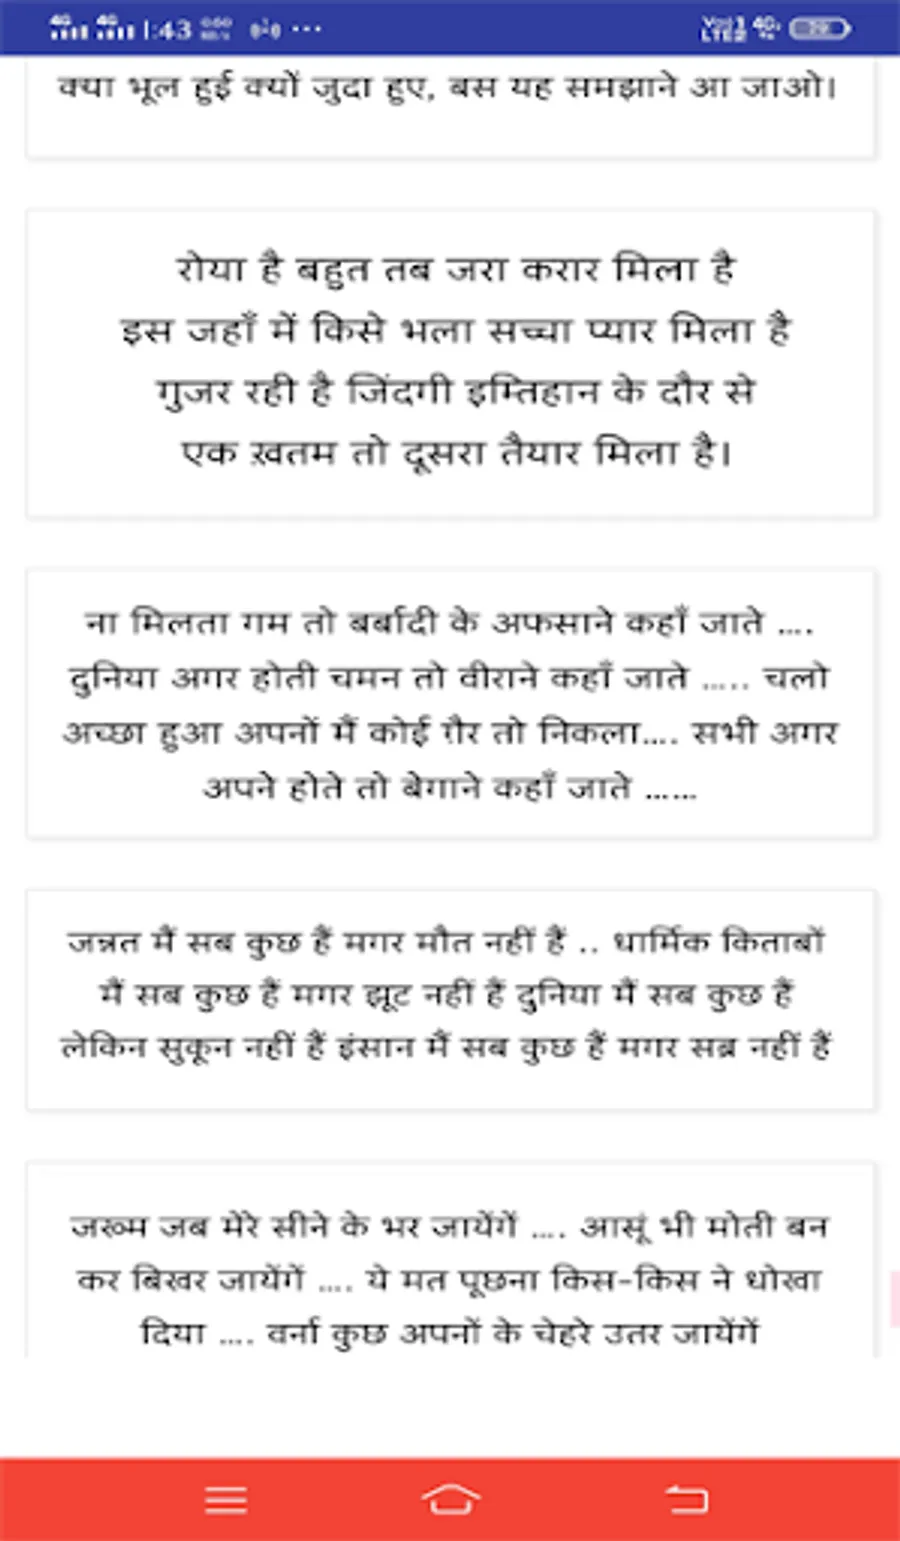 1:43
क्या भूल हुई क्यों जुदा हुए, बस यह समझाने आ जाओ।
रोया है बहुत तब जरा करार मिला है
इस जहाँ में किसे भला सच्चा प्यार मिला है
गुजर रही है जिंदगी इम्तिहान के दौर से
एक ख़तम तो दूसरा तैयार मिला है।
ना मिलता गम तो बर्बादी के अफसाने कहाँ जाते ....
दुनिया अगर होती चमन तो वीराने कहाँ जाते ..... चलो
अच्छा हुआ अपनों मैं कोई ग़ैर तो निकला.... सभी अगर
अपने होते तो बेगाने कहाँ जाते ......
जन्नत मैं सब कुछ हैं मगर मौत नहीं हैं .. धार्मिक किताबों
मैं सब कुछ हैं मगर झूट नहीं हैं दुनिया मैं सब कुछ हैं
लेकिन सुकून नहीं हैं इंसान मैं सब कुछ हैं मगर सब्र नहीं हैं
जख्म जब मेरे सीने के भर जायेंगें .... आसूं भी मोती बन
कर बिखर जायेंगें .... ये मत पूछना किस-किस ने धोखा
दिया .... वर्ना कुछ अपनों के चेहरे उतर जायेंगें